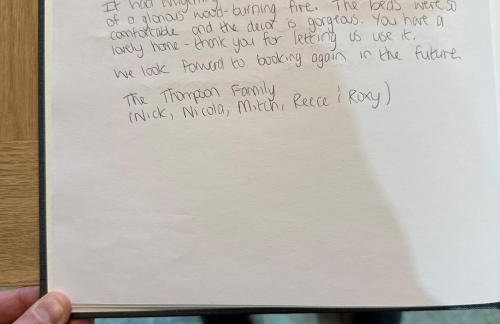 It had
of a glorious wood-burning fire. The beds were so
comfortable and the decor is gorgeous. You have a
lovely home - thank you for letting us use it.
We look forward to booking again in the future.
The Thompson Family
(Nick, Nicola, Mitch, Reece & Roxy)